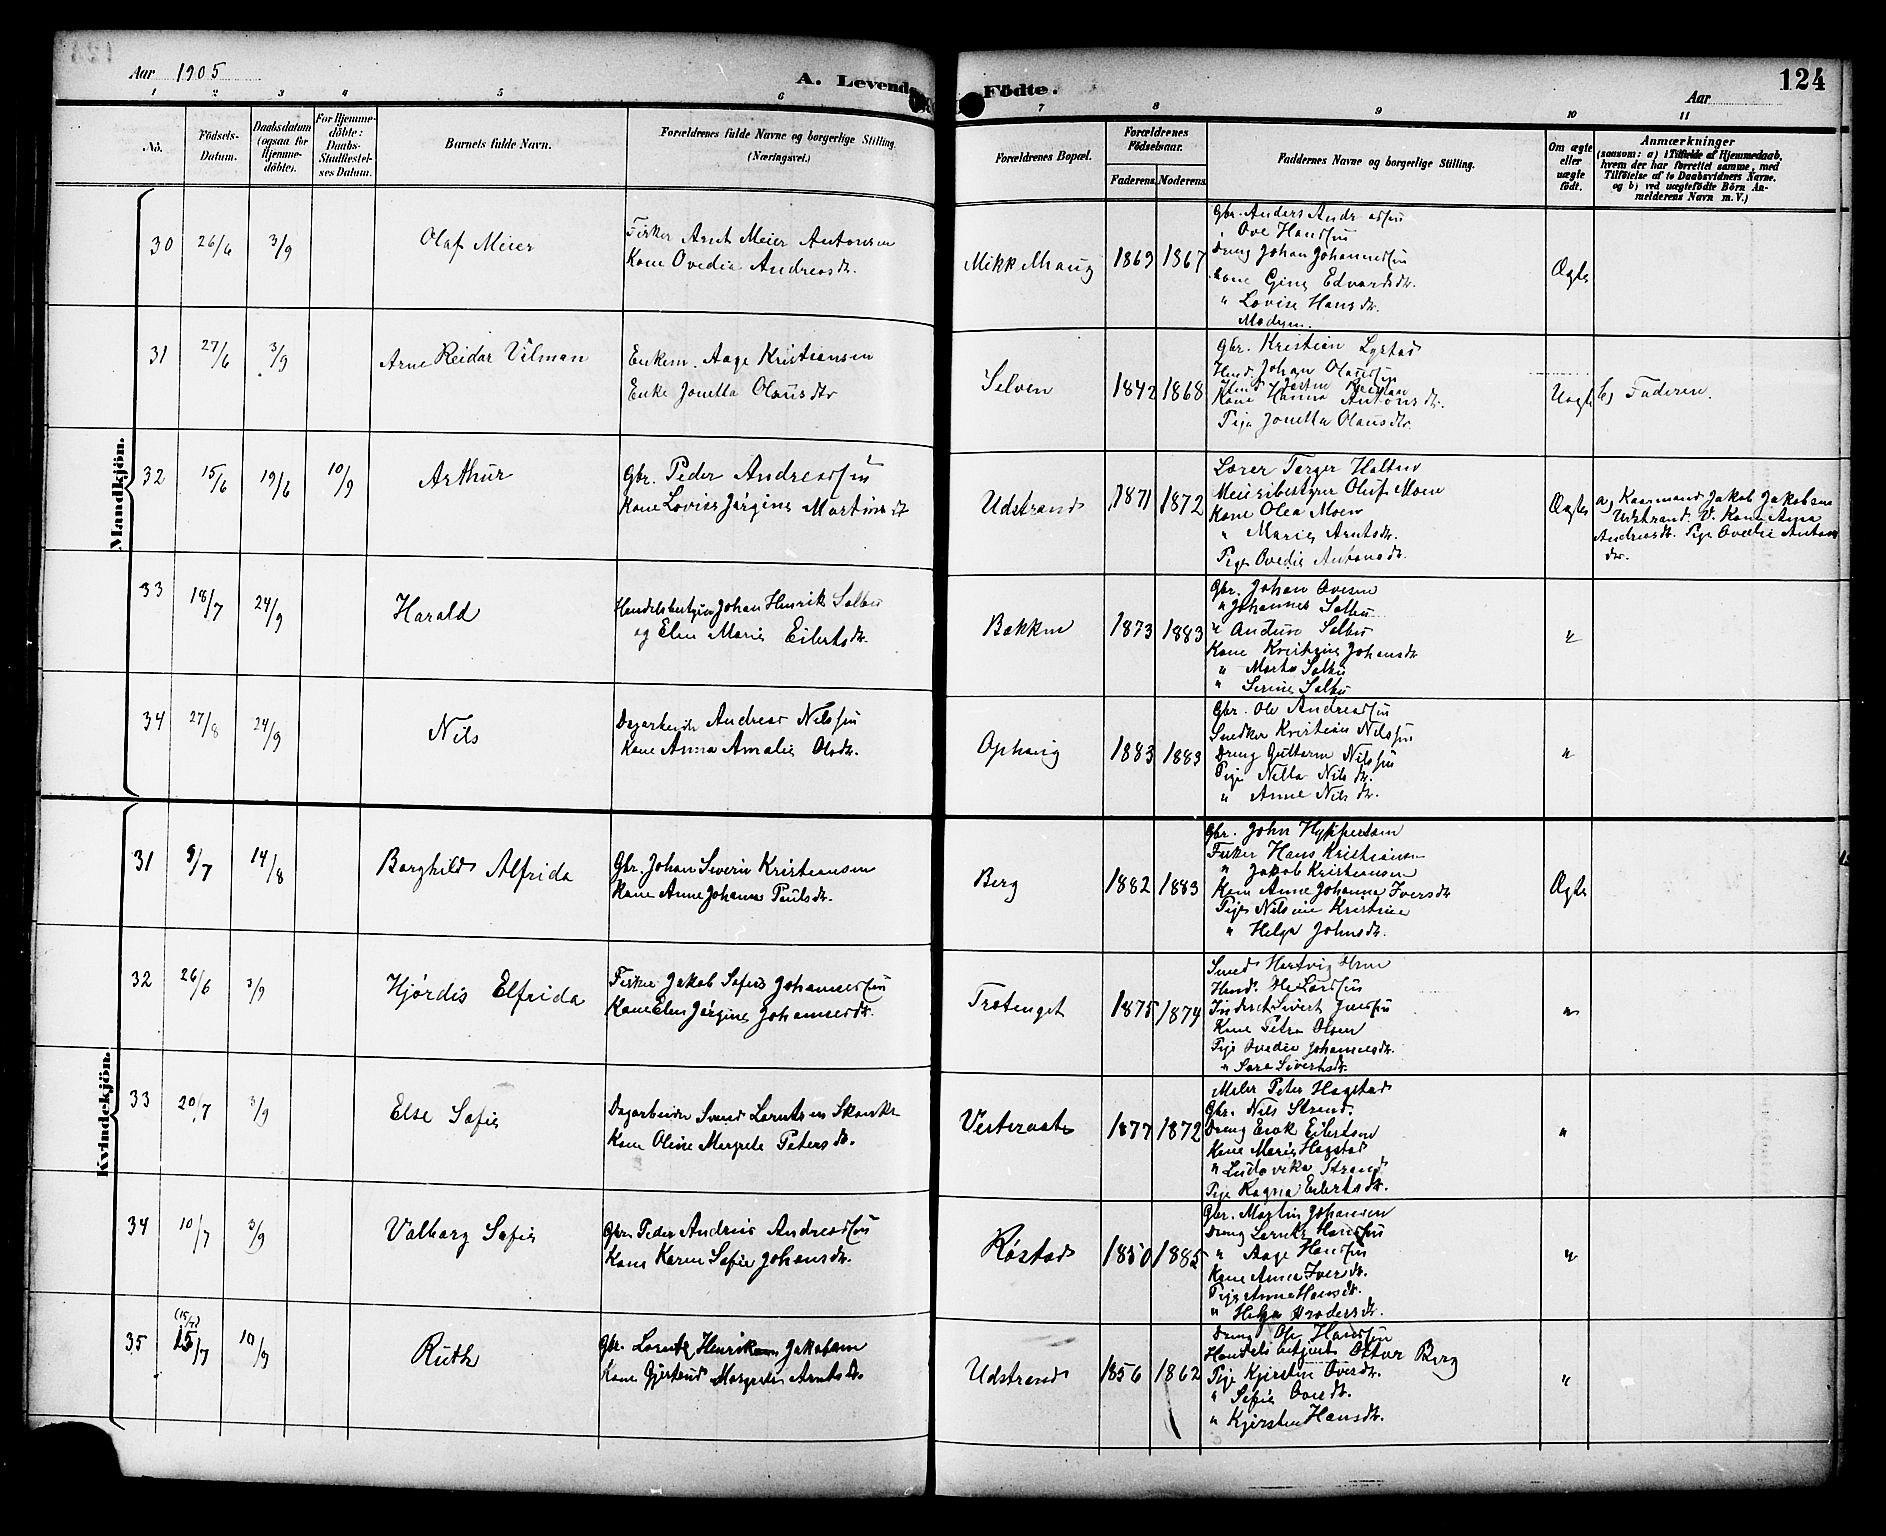 Aar 1905
A. Levende
Födte.
124
Aar
1 2 3 4 5 6 7 8 9 10 11
No.
Födsels-Datum.
Daabsdatum (ogsaa for Hjemme-döbte).
For Hjemme-döbte: Daabs-Stadfæstel-ses Datum.
Barnets fulde Navn.
Forældrenes fulde Navne og borgerlige Stilling. (Næringsvei.)
Forældrenes Bopæl.
Forældrenes Födselsaar.
Faderens. Moderens.
Faddernes Navne og borgerlige Stilling.
Om ægte eller uægte födt.
Anmærkninger
(saasom: a) i Tilfælde af Hjemmedaab,
hvem der har forrettet samme, med
Tilföielse af to Daabsvidners Navne,
og b) ved uægtefödte Börn An-
melderens Navn m. V.)
Mandkjön.
30 26/6 3/9 Olaf Meier
Fisker Arnt Meier Antonsen
Kone Ovedia Andreasdtr.
Mikkelhaug 1869 1867
Gbr. Anders Andreassen
" Ove Hansen
Dreng Johan Johannessen
Kone Gina Edvardsdtr.
" Lovise Hansdtr.
Moderen.
Ægte
31 27/6 3/9 Arne Reidar Vilman
Enkem. Aage Kristiansen
Enke Jonetta Olausdtr
Selven 1842 1868
Gbr. Kristian Lystad
Hmd. Johan Olaussen
Kone Hanna Antonsdtr.
Pige Jonetta Olausdtr.
Uægte b) Faderen.
32 15/6 19/6 10/9 Arthur
Gbr. Peder Andreassen
Kone Lovise Jørgine Martinsdt
Udstrand 1871 1872
Lærer Torger Holten
Meieribestyrer Oluf Moen
Kone Olea Moen
" Marie Arntsdtr.
Pige Ovedie Antonsdtr.
Ægte a) Kaarmand Jakob Jakobsen
Udstrand. V. Kone Anna
Andreasdtr. Pige Ovedie Antons
dtr.
33 18/7 24/9 Harald
Handelsbetjen Johan Henrik Solbu
og Elen Marie Eilertsdtr.
Bakken 1873 1883
Gbr. Johan Ovesen
" Johannes Solbu
" Anders Solbu
Kone Kristine Johansdtr
" Marta Solbu
" Serine Solbu
"
34 27/8 24/9 Nils
Dagarbeider Andreas Nilssen
Kone Anna Amalie Olsdtr.
Ophaug 1883 1883
Gbr. Ole Andreassen
Snedker Kristian Nilssen
Dreng Guttorm Nilssen
Pige Nilla Nilsdtr.
" Anne Nilsdtr.
"
Kvindekjön.
31 9/7 14/8 Borghild Alfrida
Gbr. Johan Severin Kristiansen
Kone Anne Johanna Paulsdtr.
Berg 1882 1883
Gbr. John
Fisker Hans Kristiansen
" Jakob Kristiansen
Kone Anne Johanna Iversdtr
Pige Nilsine Kristine
" Helga Johnsdtr.
Ægte
32 26/6 3/9 Hjördis Elfrida
Fisker Jakob Sofus Johannessen
Kone Elen Jørgine Johannesdtr.
Trøtenget 1875 1874
Smed Hartvig
Hmd. Ole Larssen
Inderst Sivert
Kone Petra Olsen
Pige Ovedie Johannesdtr.
" Sara Sivertsdtr.
"
33 20/7 3/9 Else Sofie
Dagarbeider Svend Lorntsen Skanke
Kone Oline Margrete Petersdtr.
Vesteraate 1877 1872
Maler Peter Hagstad
Gbr. Nils Strand.
Dreng Enok Eilertsen
Kone Marie Hagstad
" Ludovika Strand
Pige Ragna Eilertsdtr.
"
34 10/7 3/9 Valborg Sofie
Gbr. Peder Andreas Andreassen
Kone Karen Sofie Johansdtr.
Røstad 1850 1885
Gbr. Martin Johansen
Dreng Lornts Hanssen
" Aage Hanssen
Kone Anna Iversdtr.
Pige Anne Hansdtr.
" Helga Brodersdtr.
"
35 (15/7) 15/7 10/9 Ruth
Gbr. Lorntz Henriksen Jakobsen
Kone Gjertrud Margrete Arntsdtr
Udstrand 1856 1862
Dreng Ole Hanssen
Handelsbetjent Ottar Berg
Pige Kjerstine Ovesdtr.
" Sofie Ovesdtr.
" Kjersten Hansdtr.
"